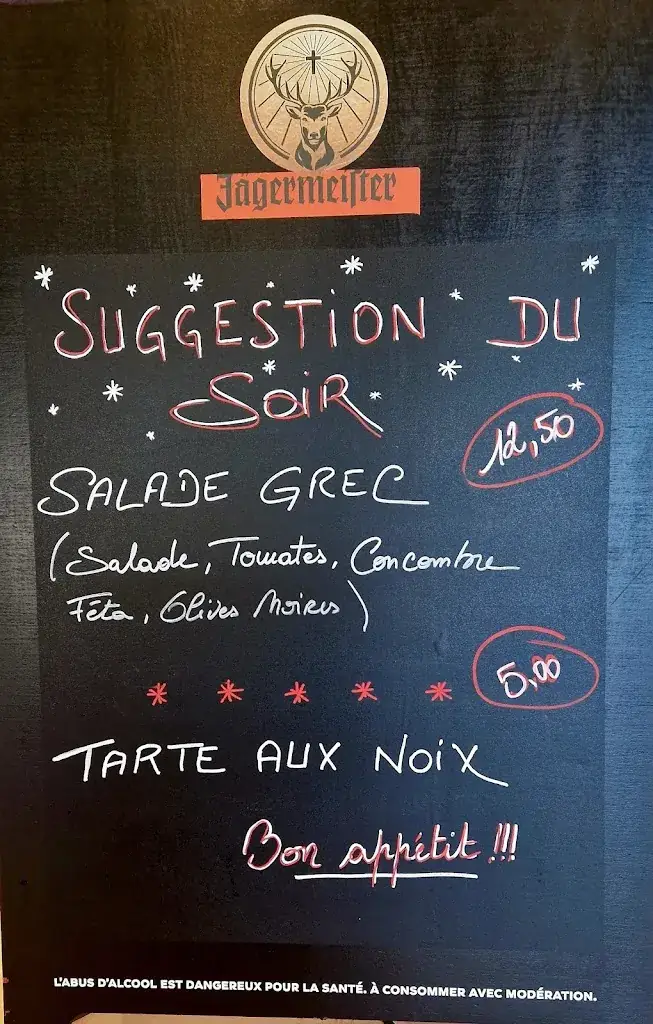 Jägermeister
SUGGESTION DU
SOIR
12,50
SALADE GREC
(Salade, Tomates, Concombre
Féta, Olives Noires)
5,00
* * * * *
TARTE AUX NOIX
Bon appétit !!!
L'ABUS D'ALCOOL EST DANGEREUX POUR LA SANTÉ. À CONSOMMER AVEC MODÉRATION.